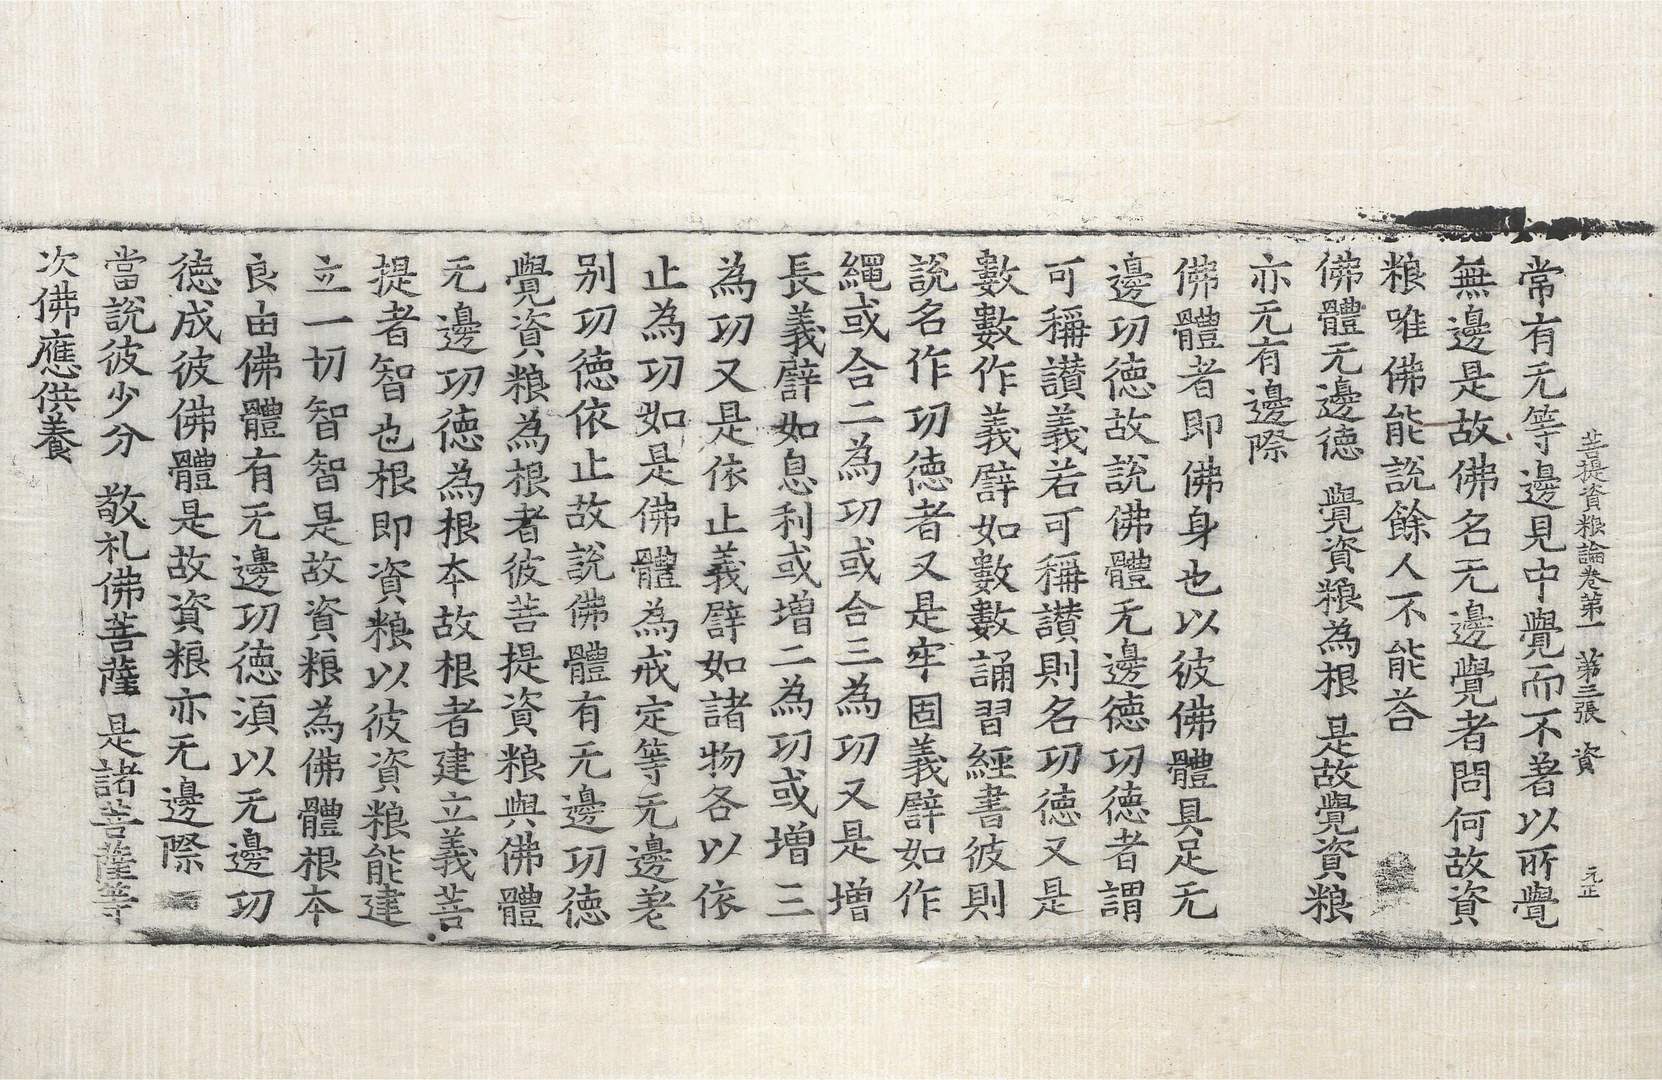 菩提資粮論卷第一 第三張 資 元正
常有无等邊見中覺而不著以所覺
無邊是故佛名无邊覺者問何故資
粮唯佛能說餘人不能荅
佛體无邊德 覺資粮為根 是故覺資粮
亦无有邊際
佛體者即佛身也以彼佛體具足无
邊功德故說佛體无邊德功德者謂
可稱讃義若可稱讃則名功德又是
數數作義譬如數數誦習經書彼則
說名作功德者又是牢固義譬如作
繩或合二為功或合三為功又是增
長義譬如息利或增二為功或增三
為功又是依止義譬如諸物各以依
止為功如是佛體為戒定等无邊差
别功德依止故說佛體有无邊功德
覺資粮為根者彼菩提資粮與佛體
无邊功德為根夲故根者建立義菩
提者智也根即資粮以彼資粮能建
立一切智智是故資粮為佛體根夲
良由佛體有无邊功德湏以无邊功
德成彼佛體是故資粮亦无邊際
當說彼少分 敬礼佛菩薩 是諸菩薩等
次佛應供養